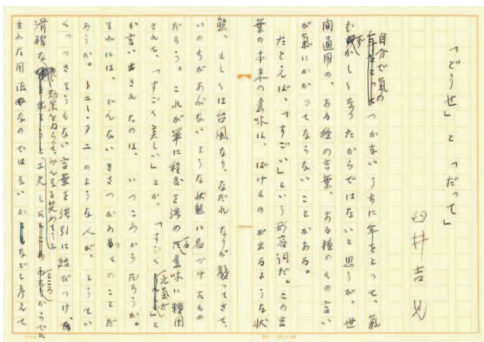 「どうせ」と「だって」
臼井吉見
自分で気の
つかないうちに年をとって、氣
むずかしくなったからではないと思うが、世
間通用の、ある種の言葉、ある種のもの言い
が氣にかかってならないことがある。
たとえば、「すごい」という形容詞だ。この言
葉の本来の意味は、ばけものが出るような状
態、もしくは台風なり、なだれなりが襲ってきて、
いのちがあぶないような状態に名づけたもの
だろう。これが単に程度を強める意味に轉用
されて、「すごく美しい」とか、「すごく元気だ」と
か言い出されたのは、いつごろからだろうか。
それには、どんないきさつがあってのことだ
ろうか。トニー・タニのような人が、とうてい
くっつきそうもない言葉を強引に結びつけ、
滑稽な効果をねらって、
まれた用法なのではないかなどと考えて